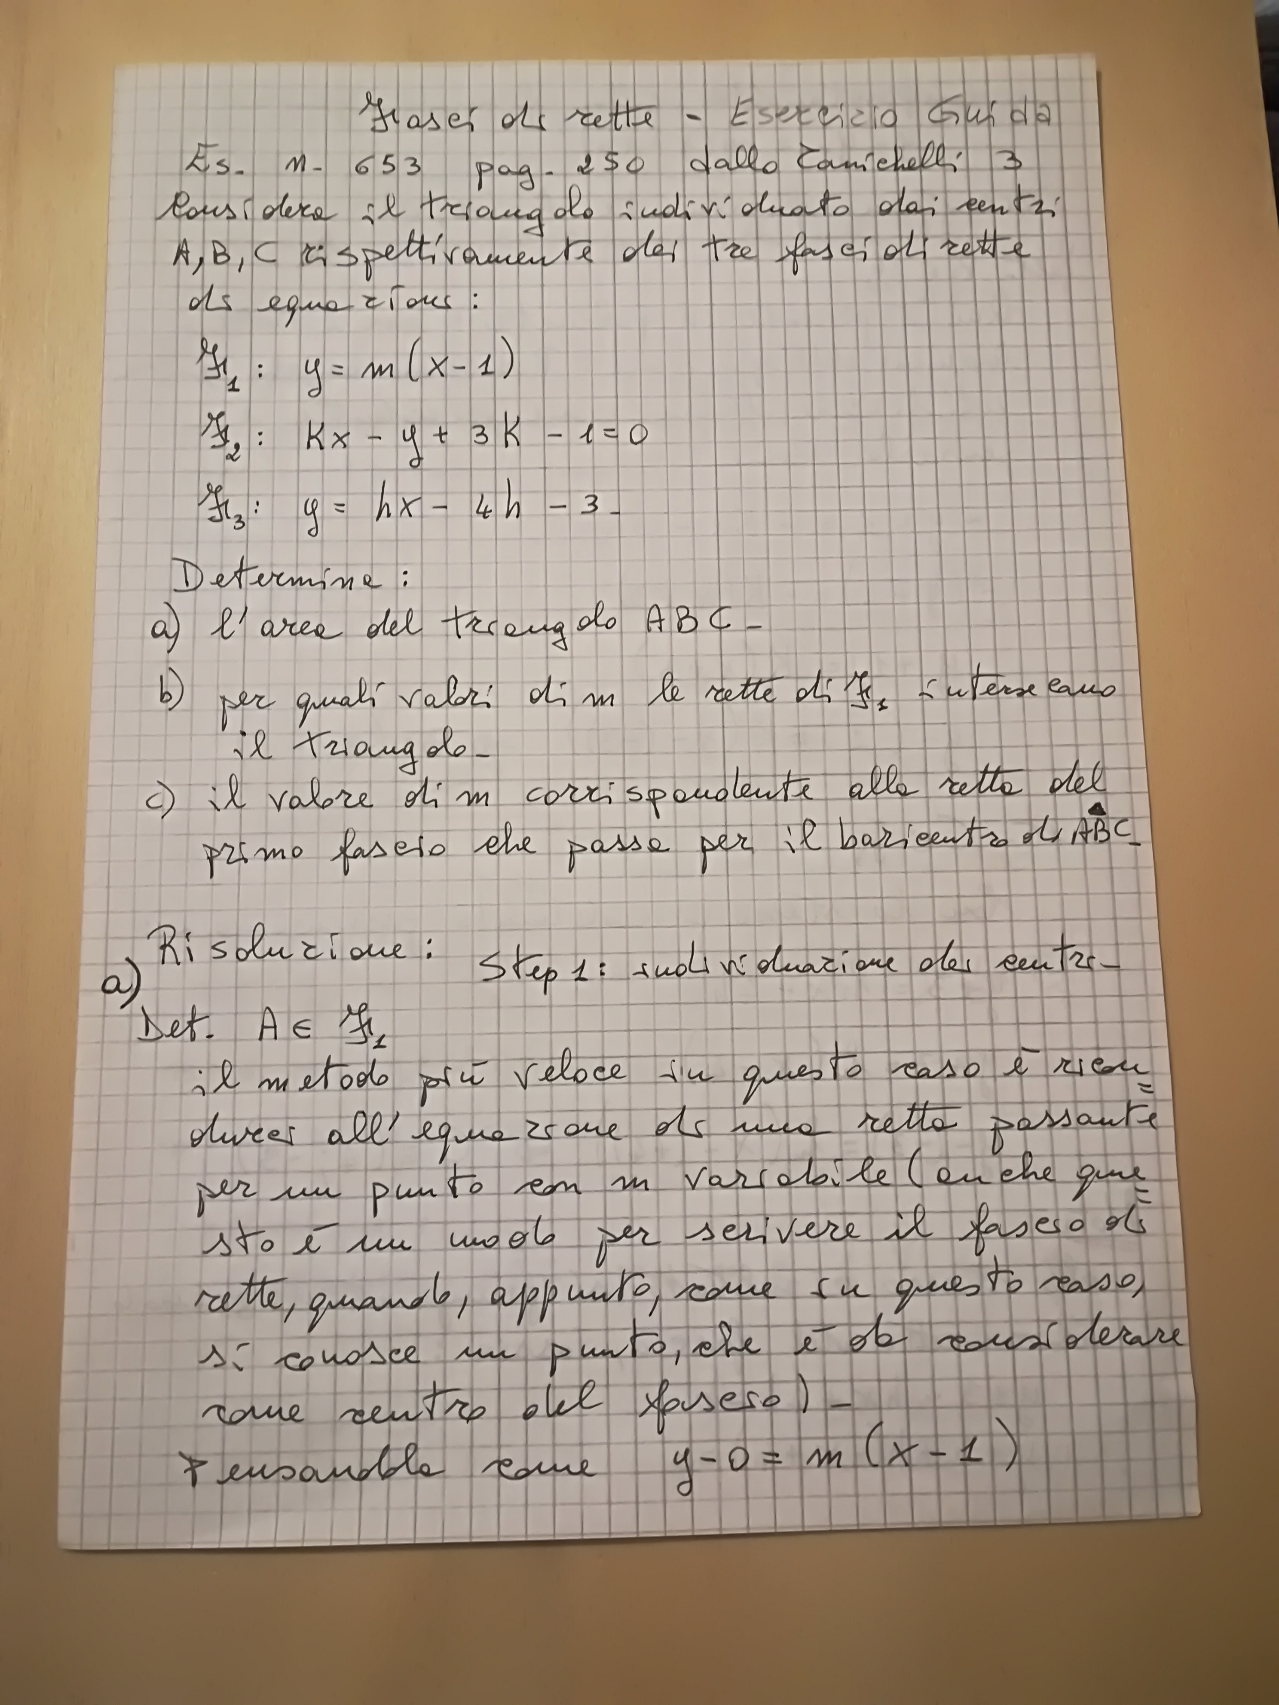 Fasci di rette - Esercizio Guida
Es. n. 653 pag. 250 dallo Zanichelli 3
Considera il triangolo individuato dai centri
A, B, C rispettivamente dei tre fasci di rette
di equazioni:
F₁: y = m(x-1)
F₂: Kx - y + 3K - 1 = 0
F₃: y = hx - 4h - 3.
Determina:
a) l'area del triangolo ABC.
b) per quali valori di m le rette di F₁ intersecano
il triangolo.
c) il valore di m corrispondente alla retta del
primo fascio che passa per il baricentro di ABC.
Risoluzione: Step 1: individuazione dei centri.
a)
Det. A ∈ F₁
il metodo più veloce in questo caso è ricon=
durci all'equazione di una retta passante
per un punto con m variabile (anche que=
sto è un modo per scrivere il fascio di
rette, quando, appunto, come in questo caso,
si conosce un punto, che è da considerare
come centro del fascio).
Pensandola come y-0 = m(x-1)